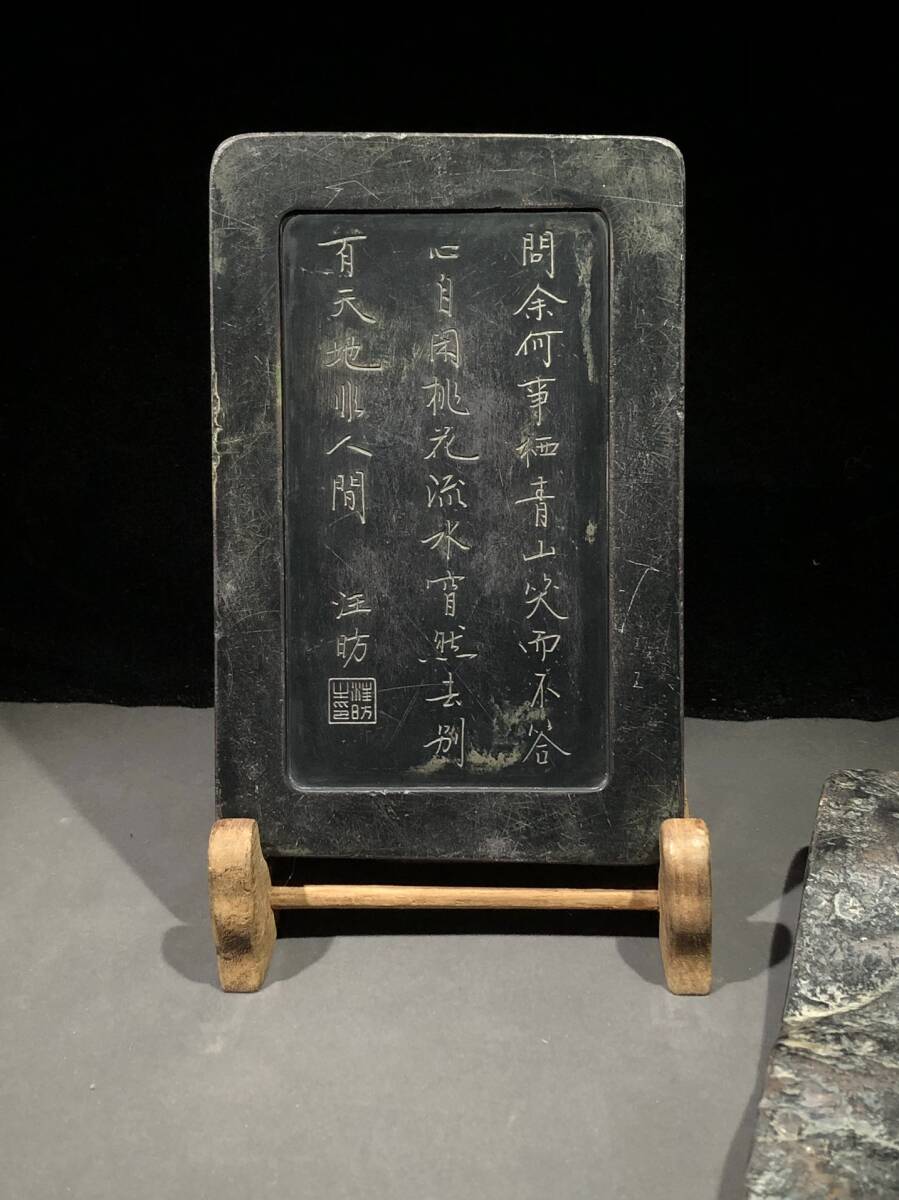 問余何事栖青山笑而不答
心自閑桃花流水窅然去別
有天地非人間 汪昉
汪昉之印